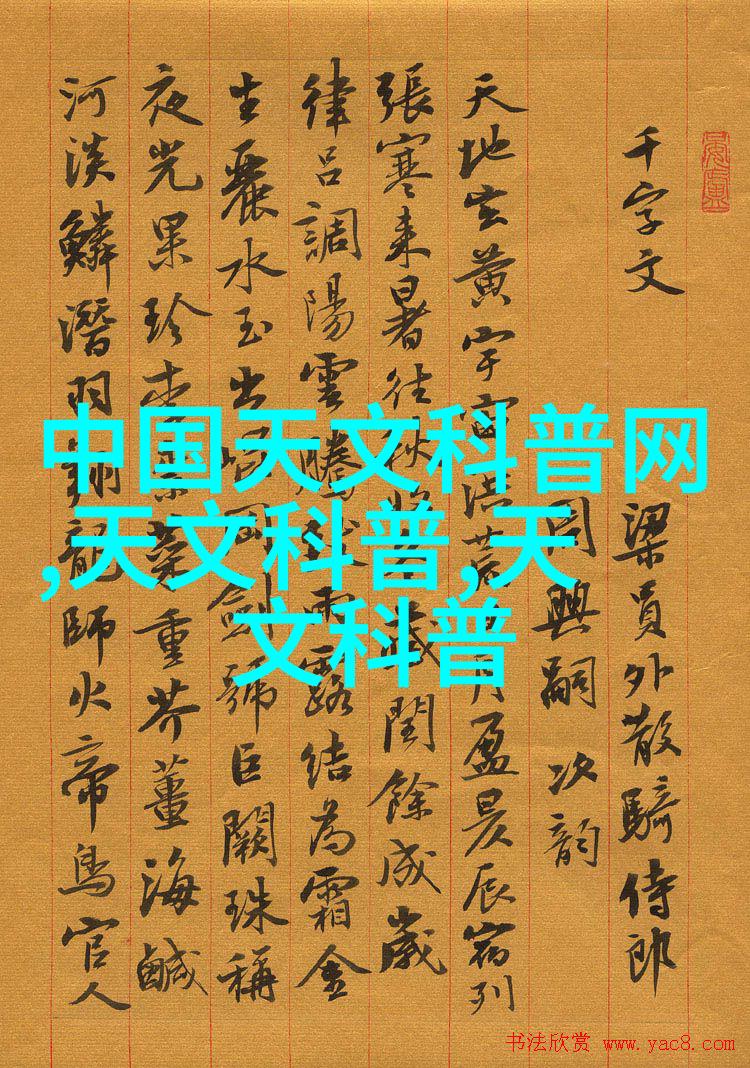 千字文
梁員外散騎侍郎
周興嗣次韵
天地玄黃宇宙洪荒月盈昃辰宿列
張寒来暑往秋藏閏餘成歲
律呂調陽雲騰雨露結為霜金
生麗水玉出岡劍號巨闕珠稱
夜光果珍李菜重芥薑海鹹
河淡鱗潛羽翔龍師火帝鳥官人
中国天文科普网
,天文科普,天
文科普
书法欣赏 www.yac8.com